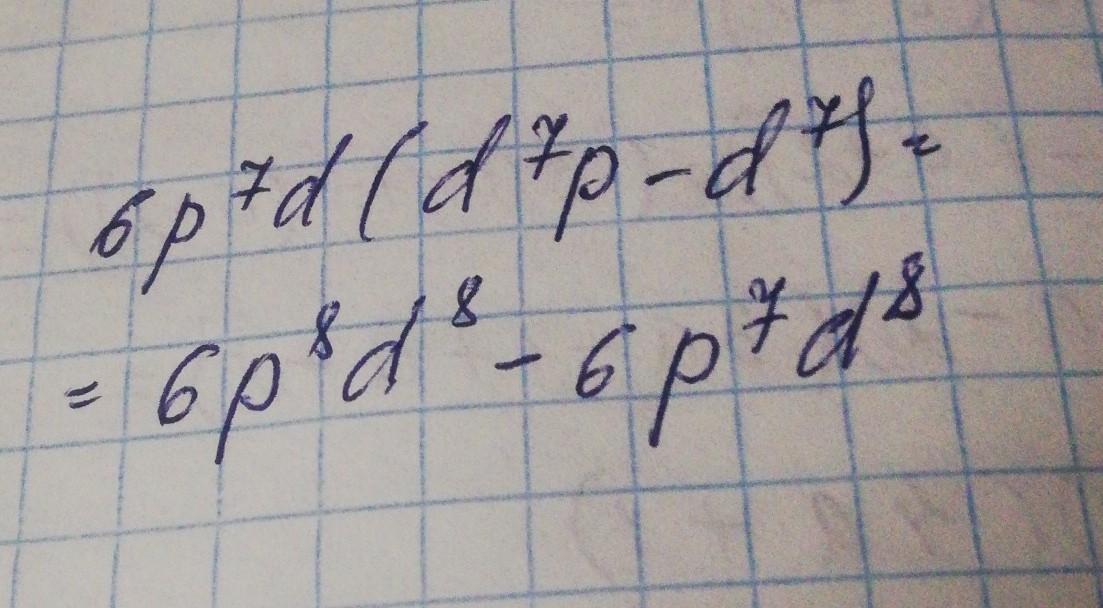 6p⁷d(d⁷p-d⁷)=
=6p⁸d⁸-6p⁷d⁸